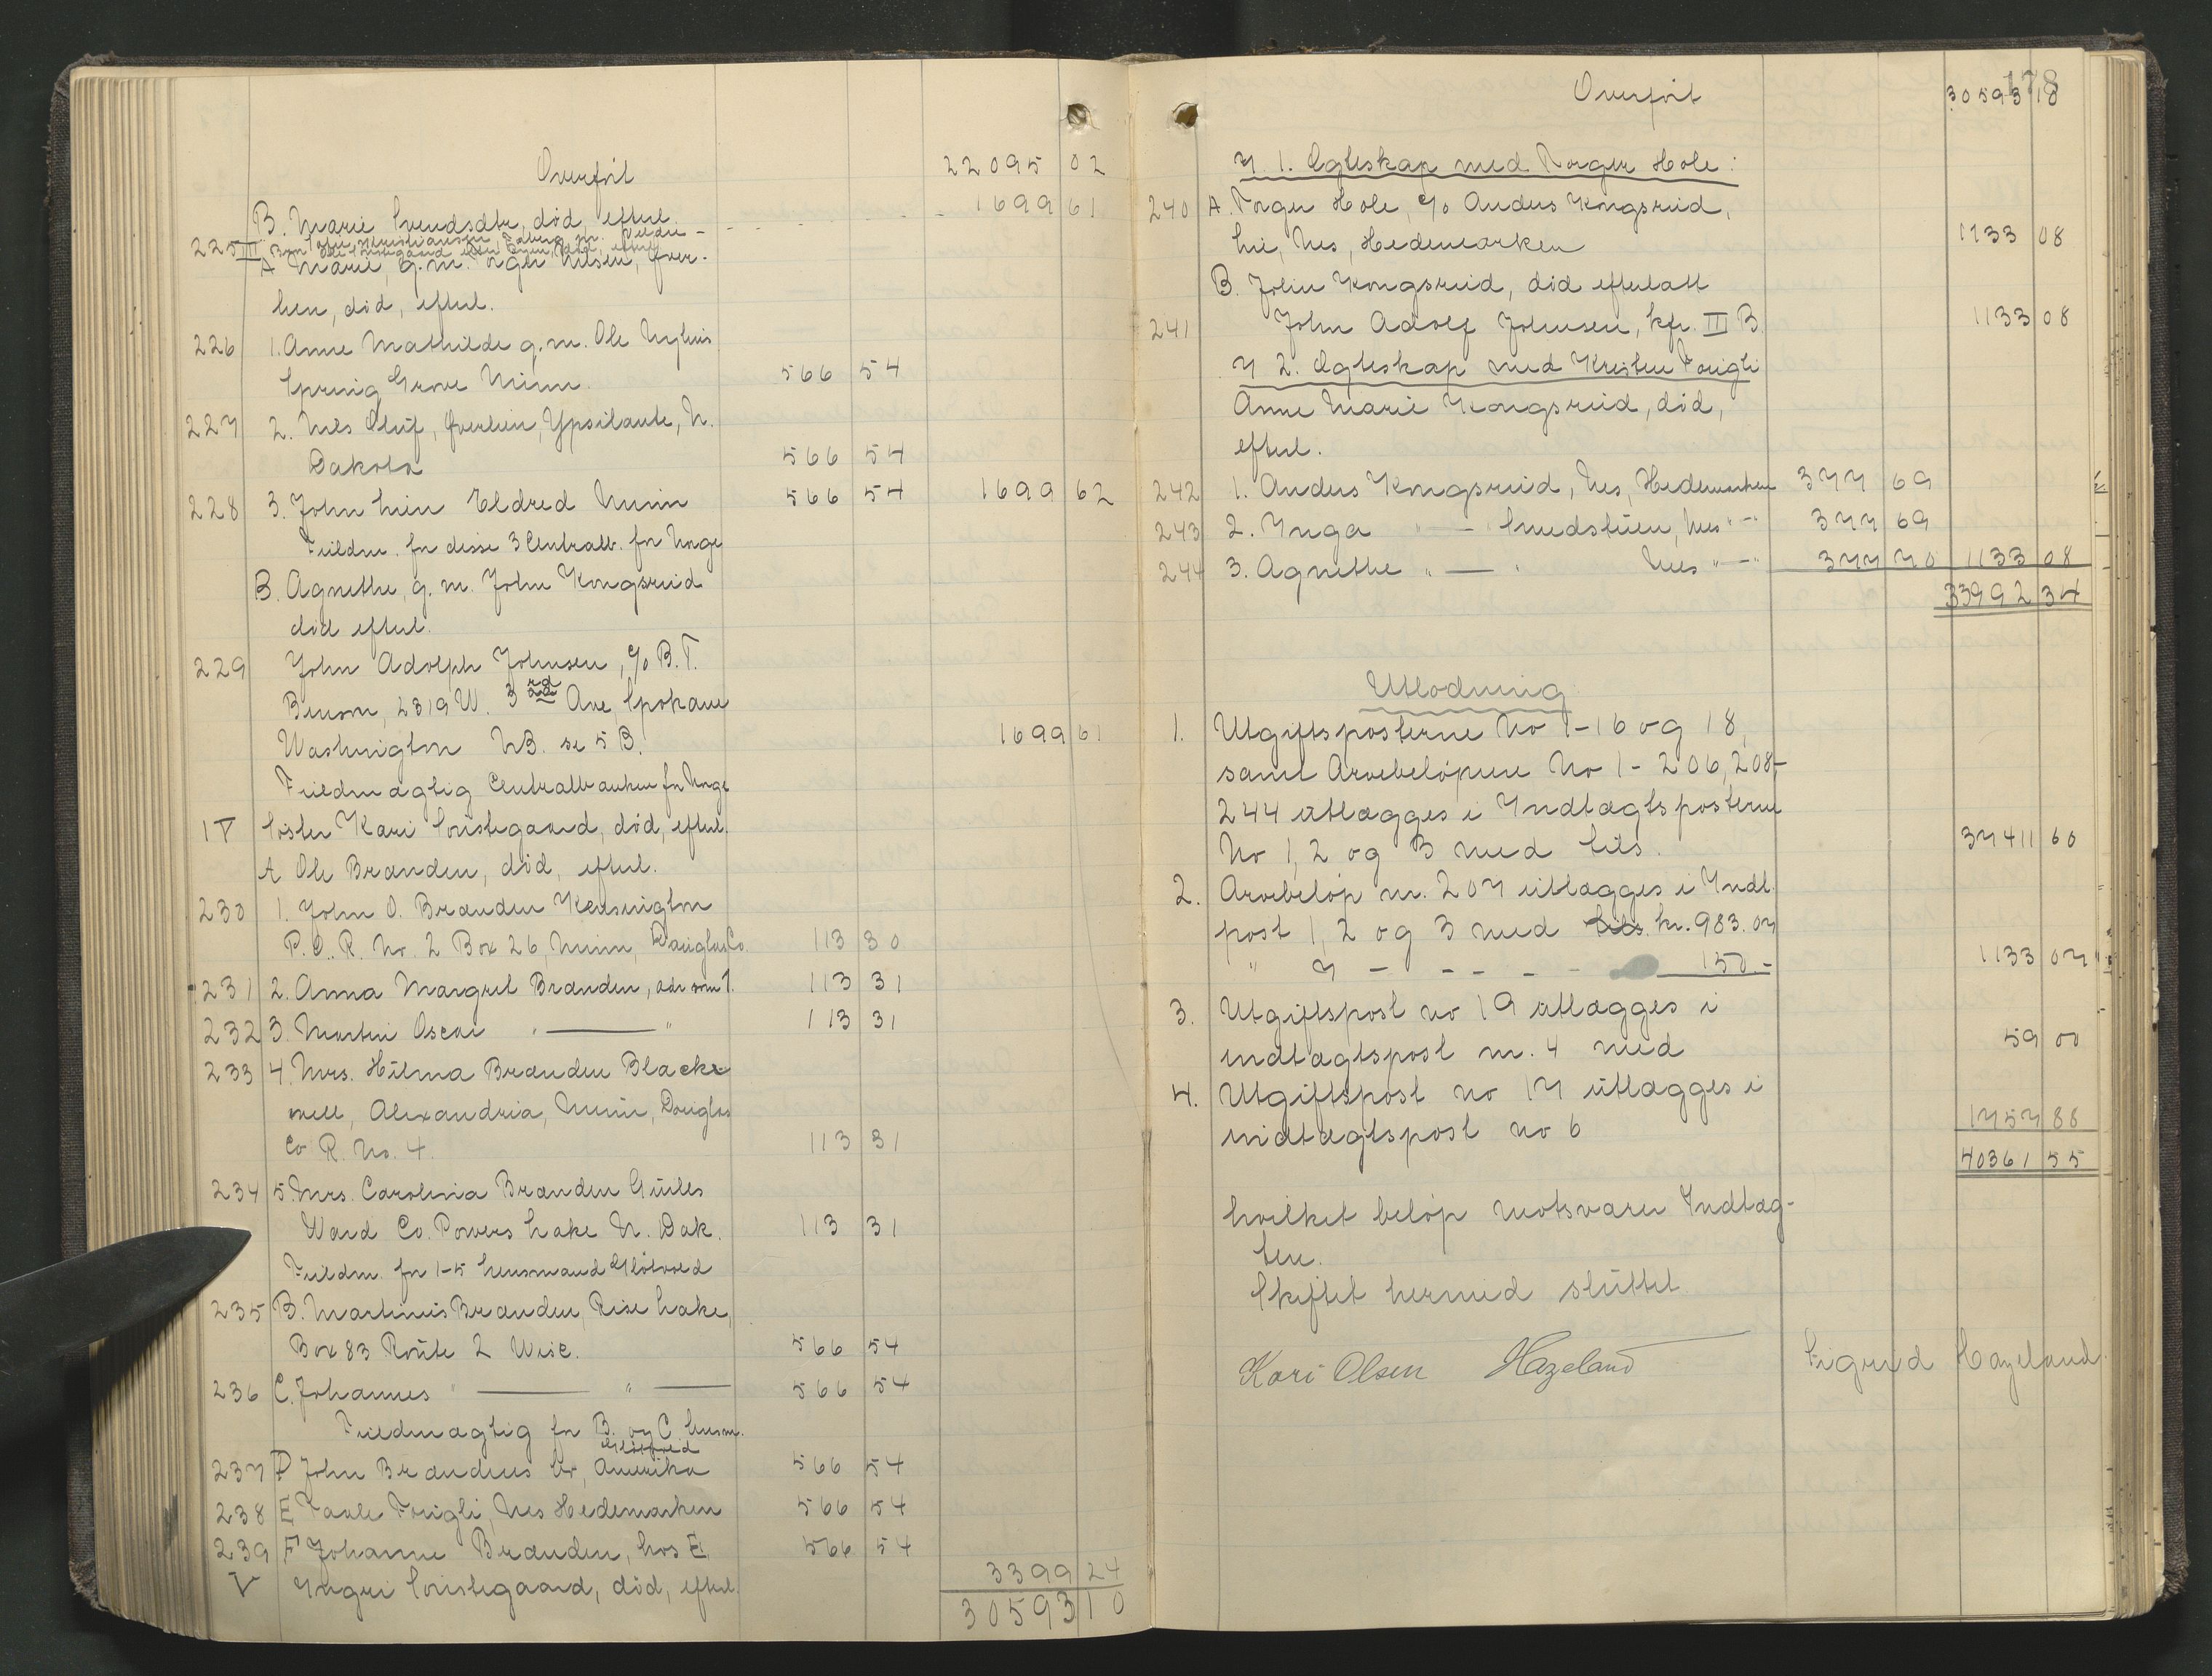 Overført 22095 02
B. Marie Svendsdtr, død, efterl. 1699 61
225
III
A Marie, g.m. Torger Nilsen, Över-
lien, død, efterl.
226 1. Anne Mathilde g.m. Ole Myhrs
Spring Grove Minn. 566 54
227 2. Nils Oluf, Øverlien, Ypsilante, N.
Dakota 566 54
228 3. John Lien Eldred Minn 566 54 1699 62
Fuldm. for disse 3 Centralb. for Norge
B. Agnethe, g.m. John Kongsrud
død efterl.
229 John Adolph Johnsen, c/o B.T.
Benson, 2319 W. 3rd Ave Spokane
Washington NB. se 5 B. 1699 61
Fuldmægtig Centralbanken for Norge
IV Søster Kari Søristegaard, død, efterl.
A Ole Brænden, død, efterl.
230 1. John O. Brænden Kensington
P.O. R. No. 2 Box 26, Minn, Douglas Co. 113 30
231 2. Anna Margret Brænden, adr som 1. 113 31
232 3. Martin Oscar " — " 113 31
233 4. Mrs. Hilma Brænden Black-
well, Alexandria, Minn, Douglas
Co R. No. 4. 113 31
234 5. Mrs. Carolina Brænden Guiles
Ward Co. Powers Lake N. Dak. 113 31
Fuldm. for 1-5 lensmand Gløtvold
235 B. Martinus Brænden, Rise Lake,
Box 83 Route 2 Wisc. 566 54
236 C. Johannes " — " — 566 54
Fuldmægtig for B. og C. lensm.
Gløtvold
237 D John Brændens br, Amerika 566 54
238 E Taale Frigli, Nes Hedemarken 566 54
239 F Johanne Brænden, hos E. 566 54
V Yngri Søristegaard, død, efterl. 3399 24
30593 10
178
Overført 30593 10
Y 1. Egteskap med Torger Hole:
240 A. Torger Hole, c/o Anders Kongsrud,
Lie, Nes, Hedemarken 1133 08
B. Johan Kongsrud, død efterlatt
241 John Adolf Johnsen, kfr. III B. 1133 08
Y 2. Egteskap med Kristen Frigli
Anne Marie Kongsrud, død,
efterl.
242 1. Anders Kongsrud, Nes, Hedemarken 377 69
243 2. Ynga " — " Smedstuen, Nes " — " 377 69
244 3. Agnethe " — " Nes " — " 377 70 1133 08
33992 34
Utlodning
1. Utgiftsposterne No 1-16 og 18,
samt Arvebeløpene No 1-206, 208-
244 utlægges i Yndtægtsposterne
No 1, 2 og 3 med tils. 37411 60
2. Arvebeløp nr. 207 utlægges i Yndt.
post 1, 2 og 3 med tils. kr. 983.07
" 7 - - - - - 150 - 1133 07
3. Utgiftspost no 19 utlægges i
indtægtspost nr. 4 med 59 00
4. Utgiftspost no 17 utlægges i
indtægtspost no 6 1757 88
40361 55
hvilket beløp motsvarer Yndtæg-
ten.
Skiftet hermed sluttet
Kari Olsen Hazeland Sigrid Hazeland.